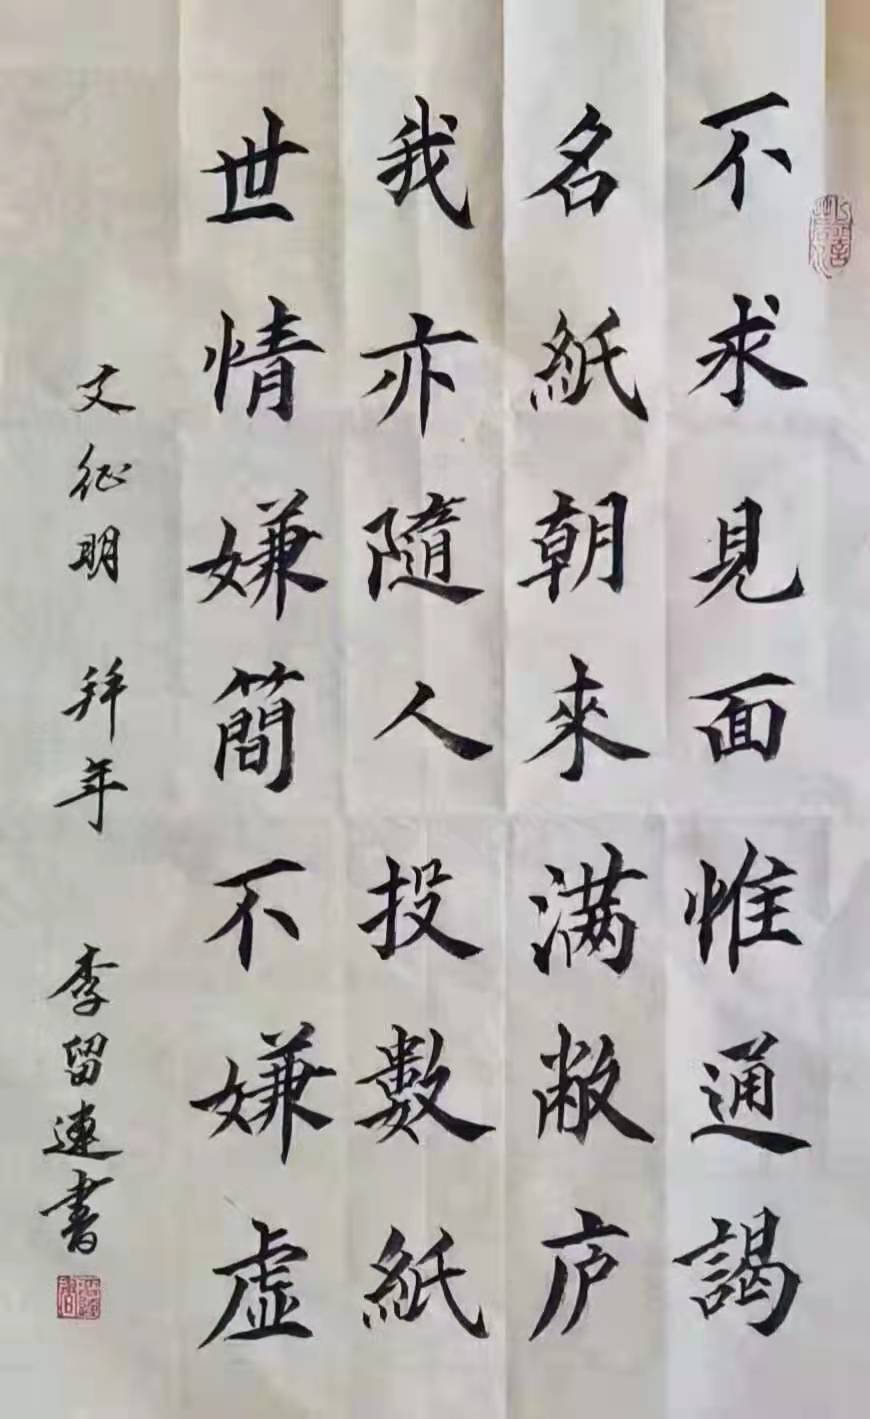 不求見面惟通謁
名紙朝来满敝庐
我亦隨人投數紙
世情嫌簡不嫌虚
文征明 拜年 李留連書